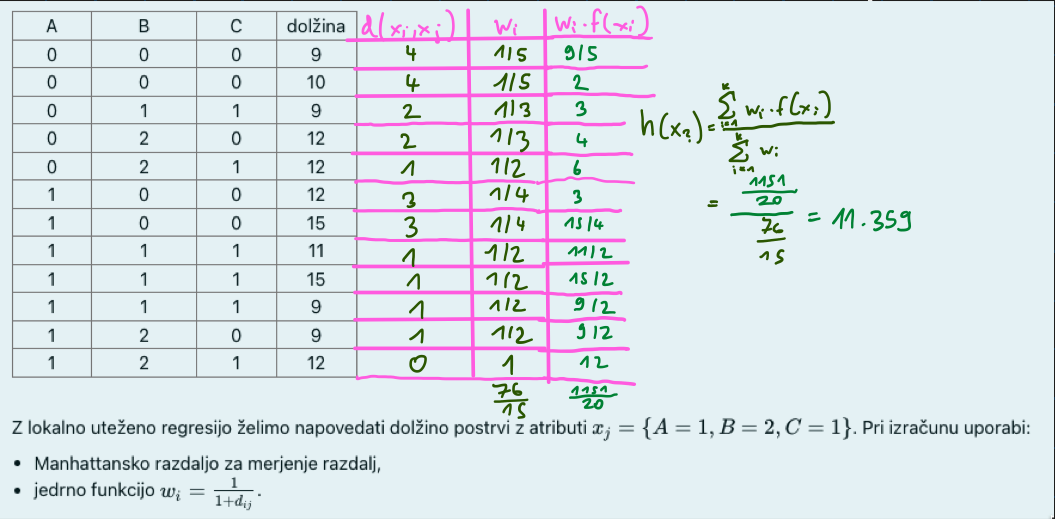 A B C dolžina d(xᵢ,xⱼ) wᵢ wᵢ·f(xᵢ)
0 0 0 9 4 1/5 9/5
0 0 0 10 4 1/5 2
0 1 1 9 2 1/3 3
0 2 0 12 2 1/3 4
0 2 1 12 1 1/2 6
1 0 0 12 3 1/4 3
1 0 0 15 3 1/4 15/4
1 1 1 11 1 1/2 11/2
1 1 1 15 1 1/2 15/2
1 1 1 9 1 1/2 9/2
1 2 0 9 1 1/2 9/2
1 2 1 12 0 1 12
76/15 1151/20
h(x?) = (∑_{i=1}^{k} wᵢ·f(xᵢ)) / (∑_{i=1}^{k} wᵢ)
= (1151/20) / (76/15) = 11.359
Z lokalno uteženo regresijo želimo napovedati dolžino postrvi z atributi xⱼ = {A = 1, B = 2, C = 1}. Pri izračunu uporabi:
• Manhattansko razdaljo za merjenje razdalj,
• jedrno funkcijo wᵢ = 1/(1+d_{ij}).